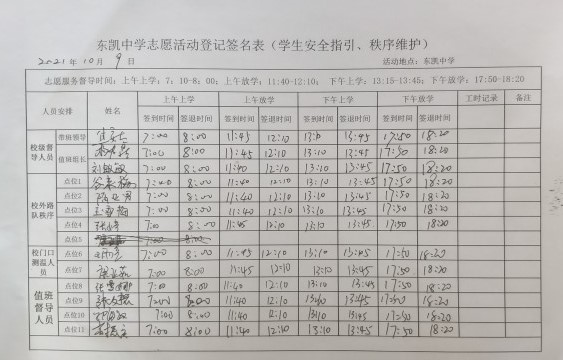 东凯中学志愿活动登记签名表（学生安全指引、秩序维护）
2021年10月9日 活动地点：东凯中学
志愿服务督导时间：上午上学：7：10-8：00；上午放学：11:40-12:10； 下午上学：13:15-13:45；下午放学：17:50-18:20
人员安排 姓名 上午上学 上午放学 下午上学 下午放学 工时记录 备注
签到时间 签退时间 签到时间 签退时间 签到时间 签退时间 签到时间 签退时间
校级督导人员 值班领导 7:00 8:00 11:45 12:10 13:10 13:45 17:50 18:20
值班组长 7:00 8:00 11:45 12:10 13:10 13:45 17:50 18:20
刘敏敏 7:00 8:00 11:40 12:10 13:10 13:45 17:50 18:20
校外路队秩序 点位1 7:40 8:00 11:40 12:10 13:10 13:45 17:50 18:20
点位2 7:00 8:00 11:40 12:10 13:10 13:45 17:50 18:20
点位3 7:00 8:00 11:40 12:10 13:10 13:45 17:50 18:20
点位4 7:00 8:00 11:45 12:10 13:10 13:45 17:50 18:20
点位5 7:00 8:00
校门口测温人员 点位6 7:00 8:00 11:45 12:10 13:10 13:45 17:50 18:20
点位7 7:00 8:00 11:45 12:10 13:10 13:45 17:50 18:20
值班督导人员 点位8 7:00 8:00 11:40 12:10 13:10 13:45 17:50 18:20
点位9 7:00 8:00 11:40 12:10 13:45 18:20
点位10 7:00 8:00 11:40 12:10 13:10 13:45 17:50 18:20
点位11 7:00 8:00 11:40 12:10 13:10 13:45 17:50 18:20